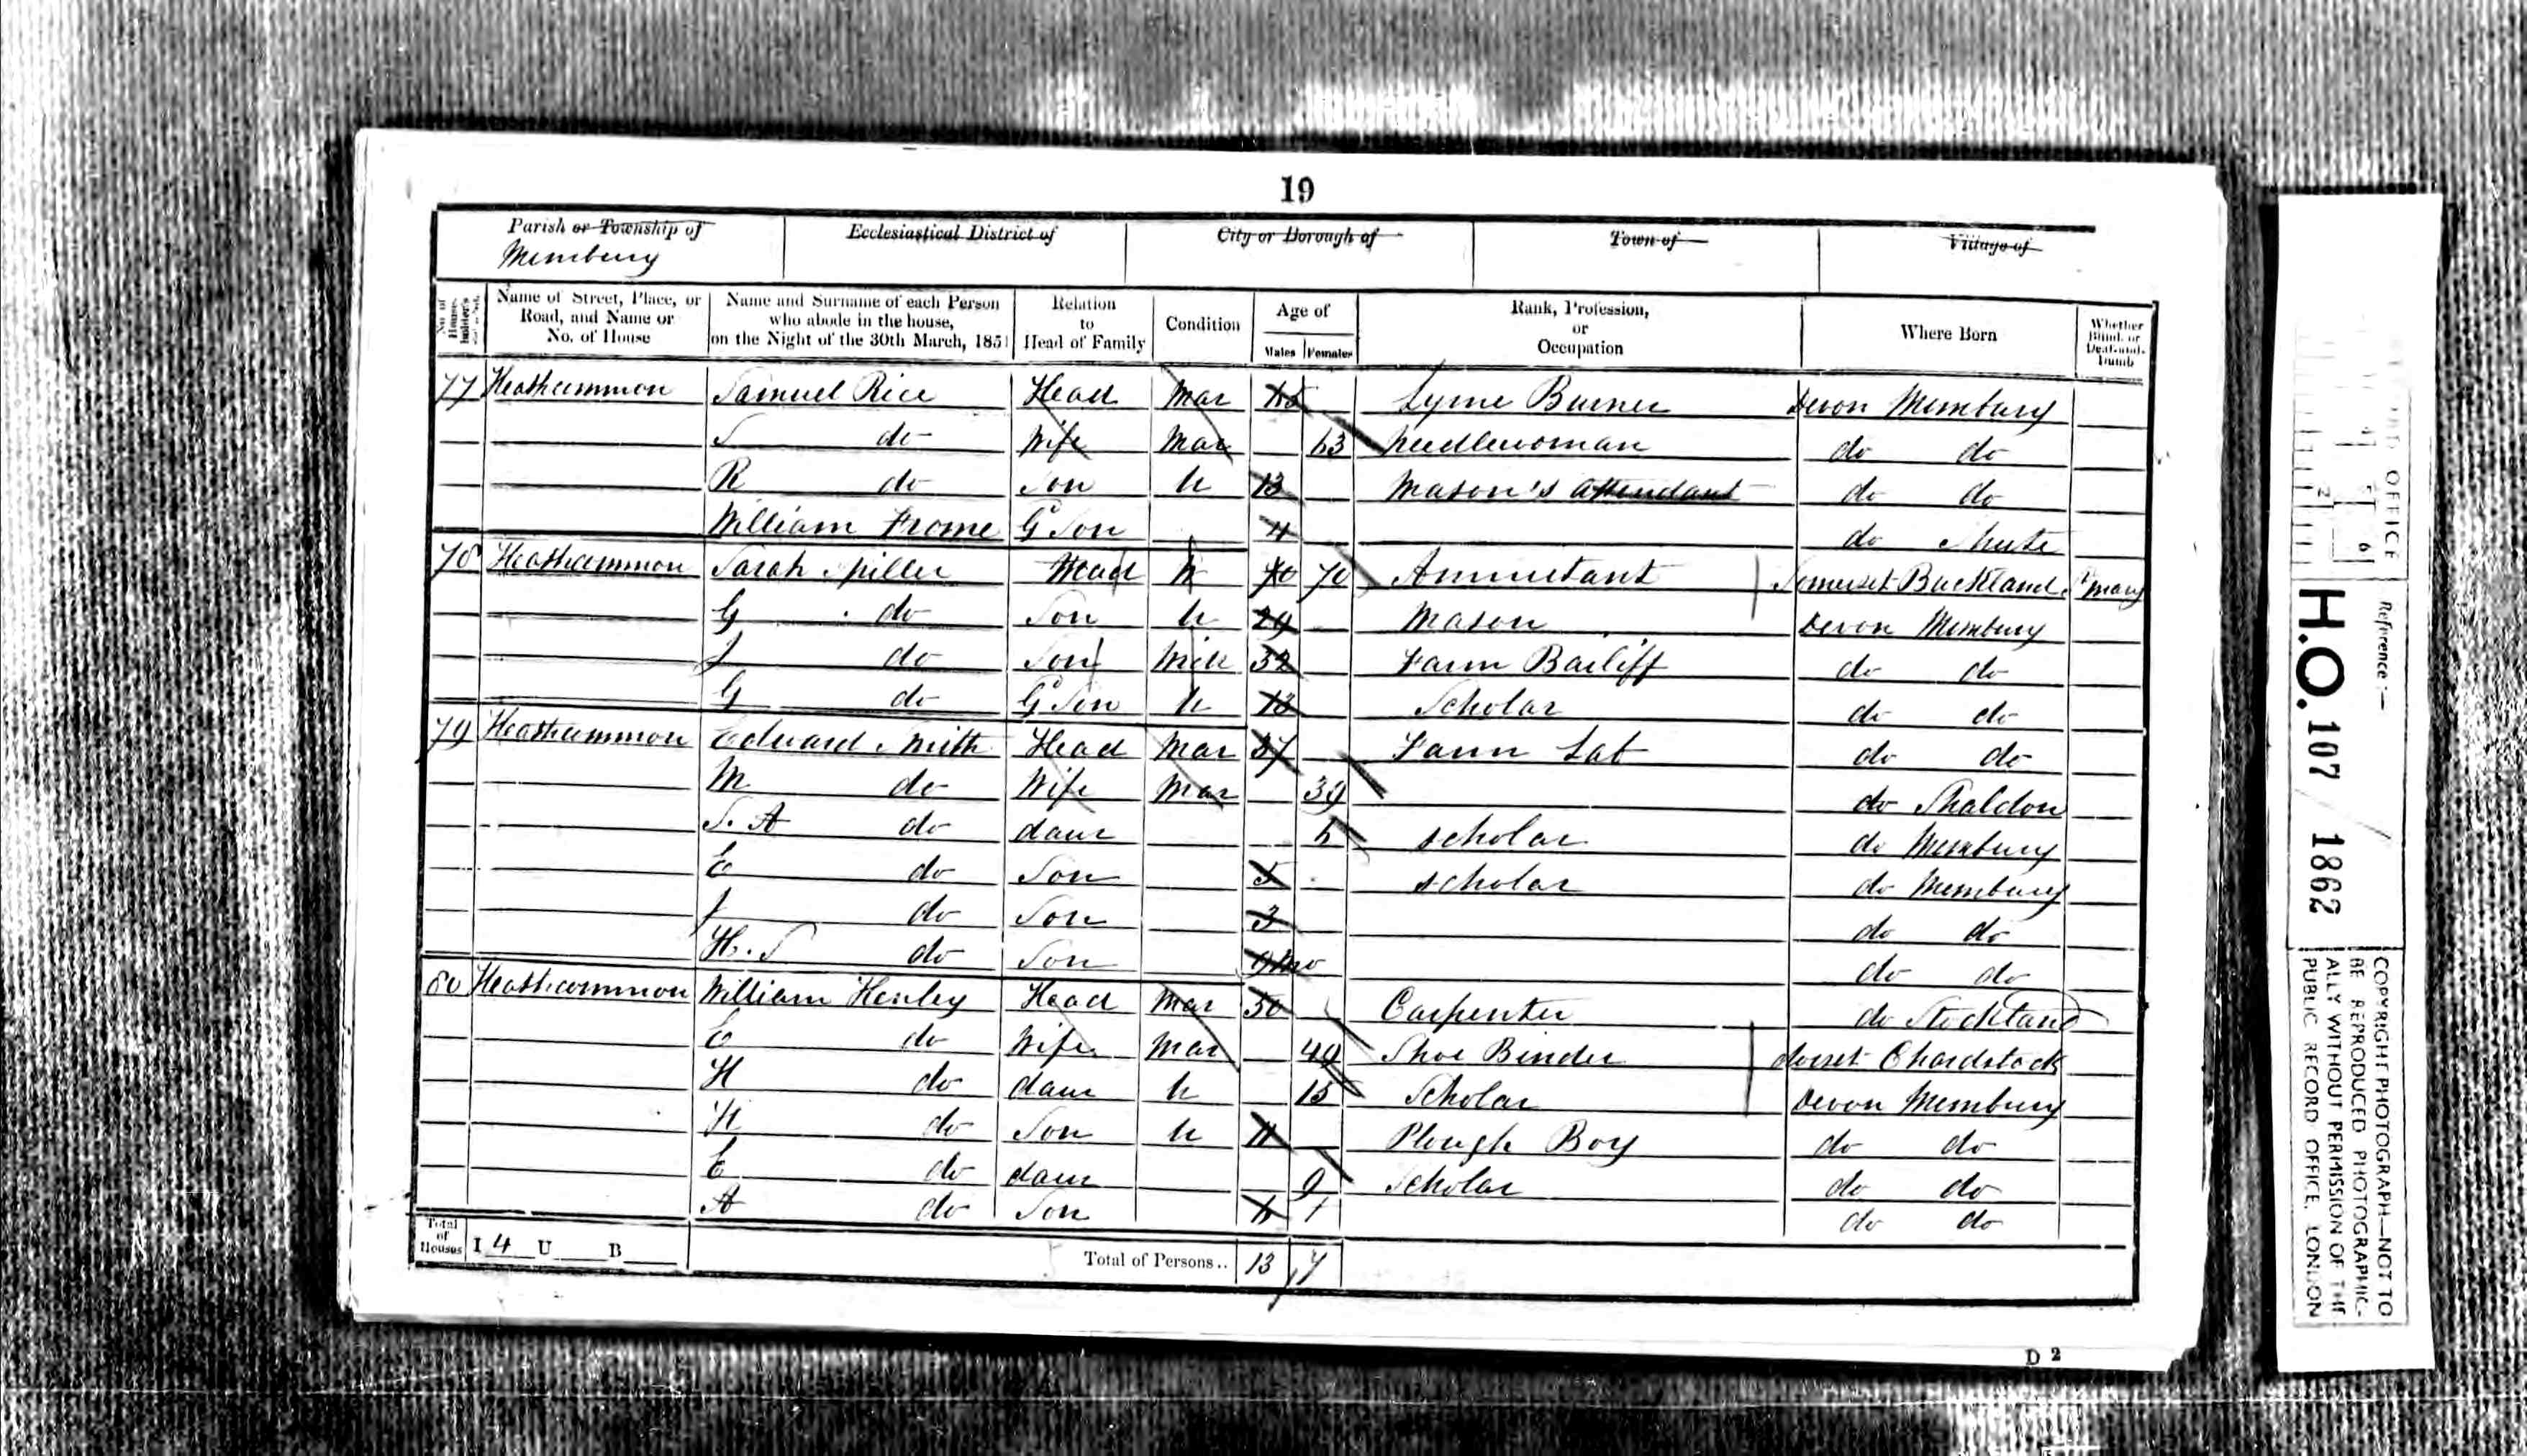 19
Parish or Township of Ecclesiastical District of City or Borough of Town of Village of
Membury
No. of House- holder's Name of Street, Place, or Road, and Name or No. of House Name and Surname of each Person who abode in the house, on the Night of the 30th March, 1851 Relation to Head of Family Condition Age of Males Females Rank, Profession, or Occupation Where Born Whether Blind, or Deaf-and-Dumb
77 Heathcommon Samuel Rice Head Mar Lyme Burner Devon Membury
S do Wife Mar 63 Needlewoman do do
R do Son U 13 Mason's attendant do do
William Frome G Son 4 do Shute
78 Heathcommon Sarah Spiller Head W 70 70 Annuitant Somerset Buckland St Mary
G do Son U 29 Mason Devon Membury
J do Son Wid 32 Farm Bailiff do do
G do G Son U 13 Scholar do do
79 Heathcommon Edward Smith Head Mar 37 Farm Lab do do
M do Wife Mar 39 do Shaldon
S. A do daur scholar do Membury
E do Son 5 scholar do Membury
J do Son 3 do do
H. S do Son 9 Mo do do
80 Heathcommon William Henley Head Mar 50 Carpenter do Stockland
E do Wife Mar 49 Shoe Binder dorset Chardstock
H do daur U 13 Scholar Devon Membury
H do Son U 11 Plough Boy do do
E do daur 9 Scholar do do
A do Son do do
Total of Houses I 4 U B Total of Persons.. 13 7
D 2
OFFICE
Reference :—
H.O. 107 / 1862
COPYRIGHT PHOTOGRAPH—NOT TO
BE REPRODUCED PHOTOGRAPHIC-
ALLY WITHOUT PERMISSION OF THE
PUBLIC RECORD OFFICE, LONDON